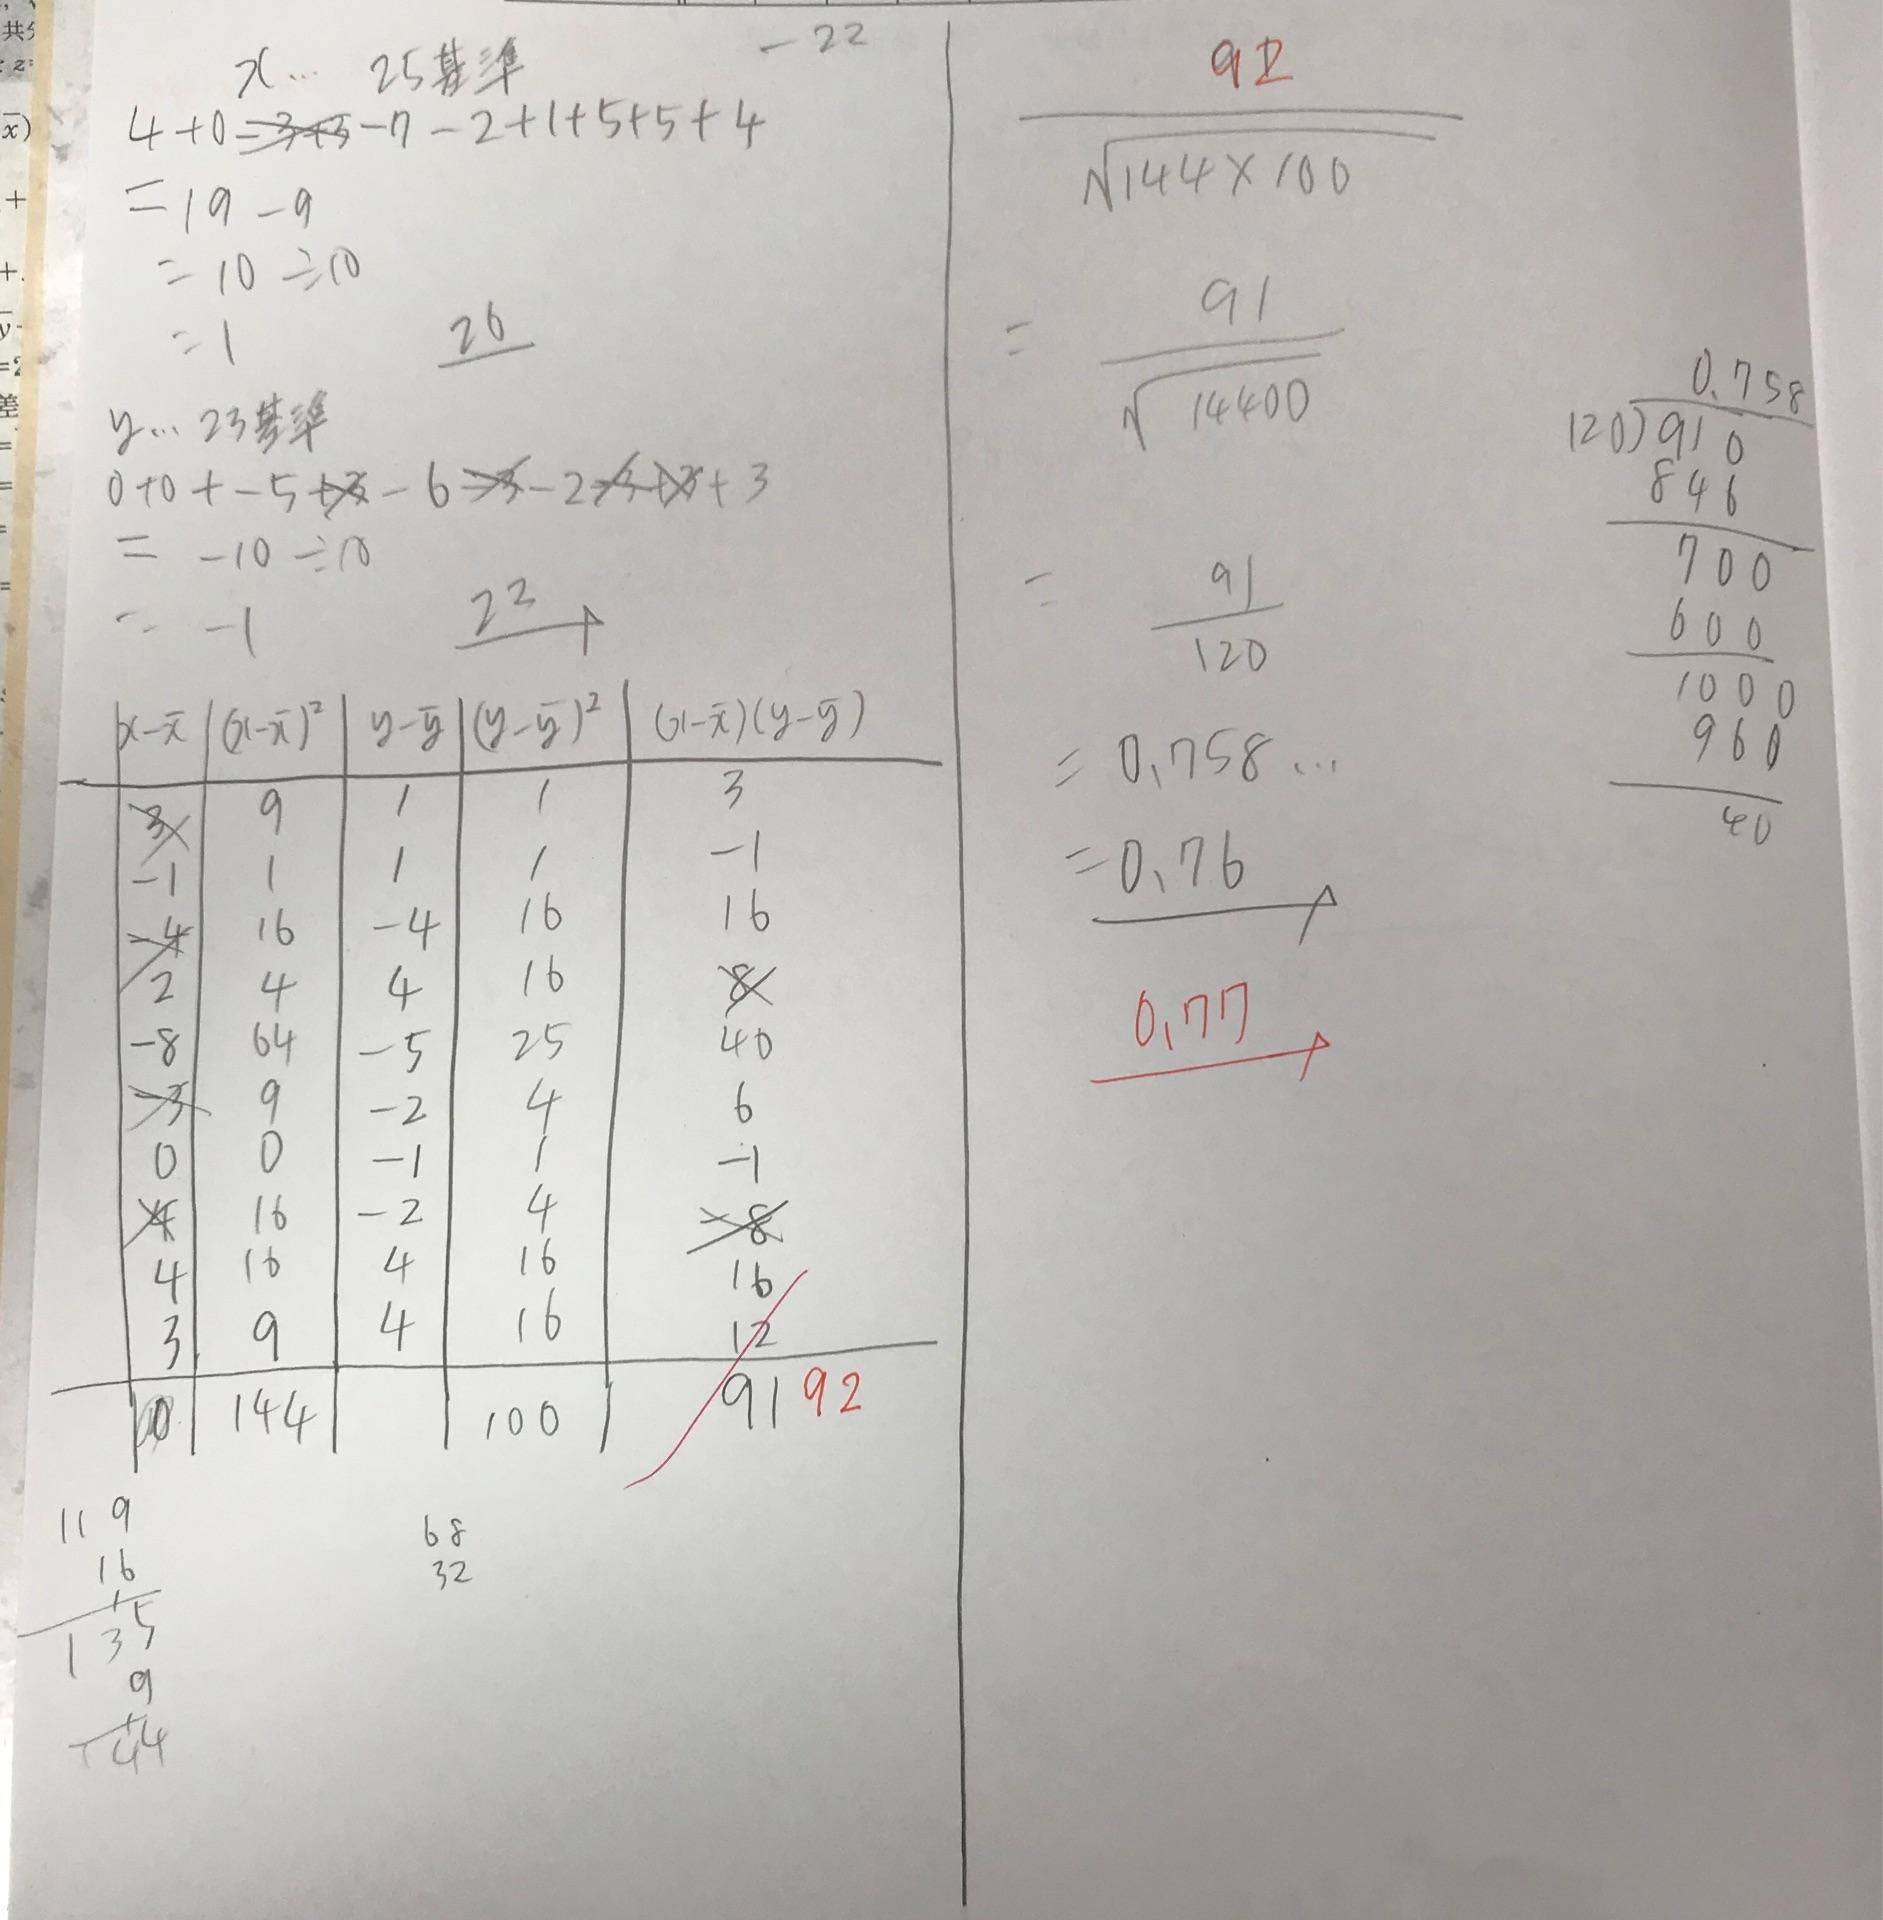 共
z=
x̄)
+
+
差
-22
x… 25基準
4+0-3+3-7-2+1+5+5+4
=19-9
=10÷10
=1 26
y… 23基準
0+0+-5+3-6-3-2-3+3+3
= -10÷10
= -1 22
x-x̄ (x-x̄)² y-ȳ (y-ȳ)² (x-x̄)(y-ȳ)
3 9 1 1 3
-1 1 1 1 -1
-4 16 -4 16 16
2 4 4 16 8
-8 64 -5 25 40
-3 9 -2 4 6
0 0 -1 1 -1
4 16 -2 4 -8
4 16 4 16 16
3 9 4 16 12
0 144 100 91 92
119
16
135
9
144
68
32
92
√144×100
= 91
√14400
= 91
120
=0.758…
=0.76
0.77
0.758
120)910
846
700
600
1000
960
40